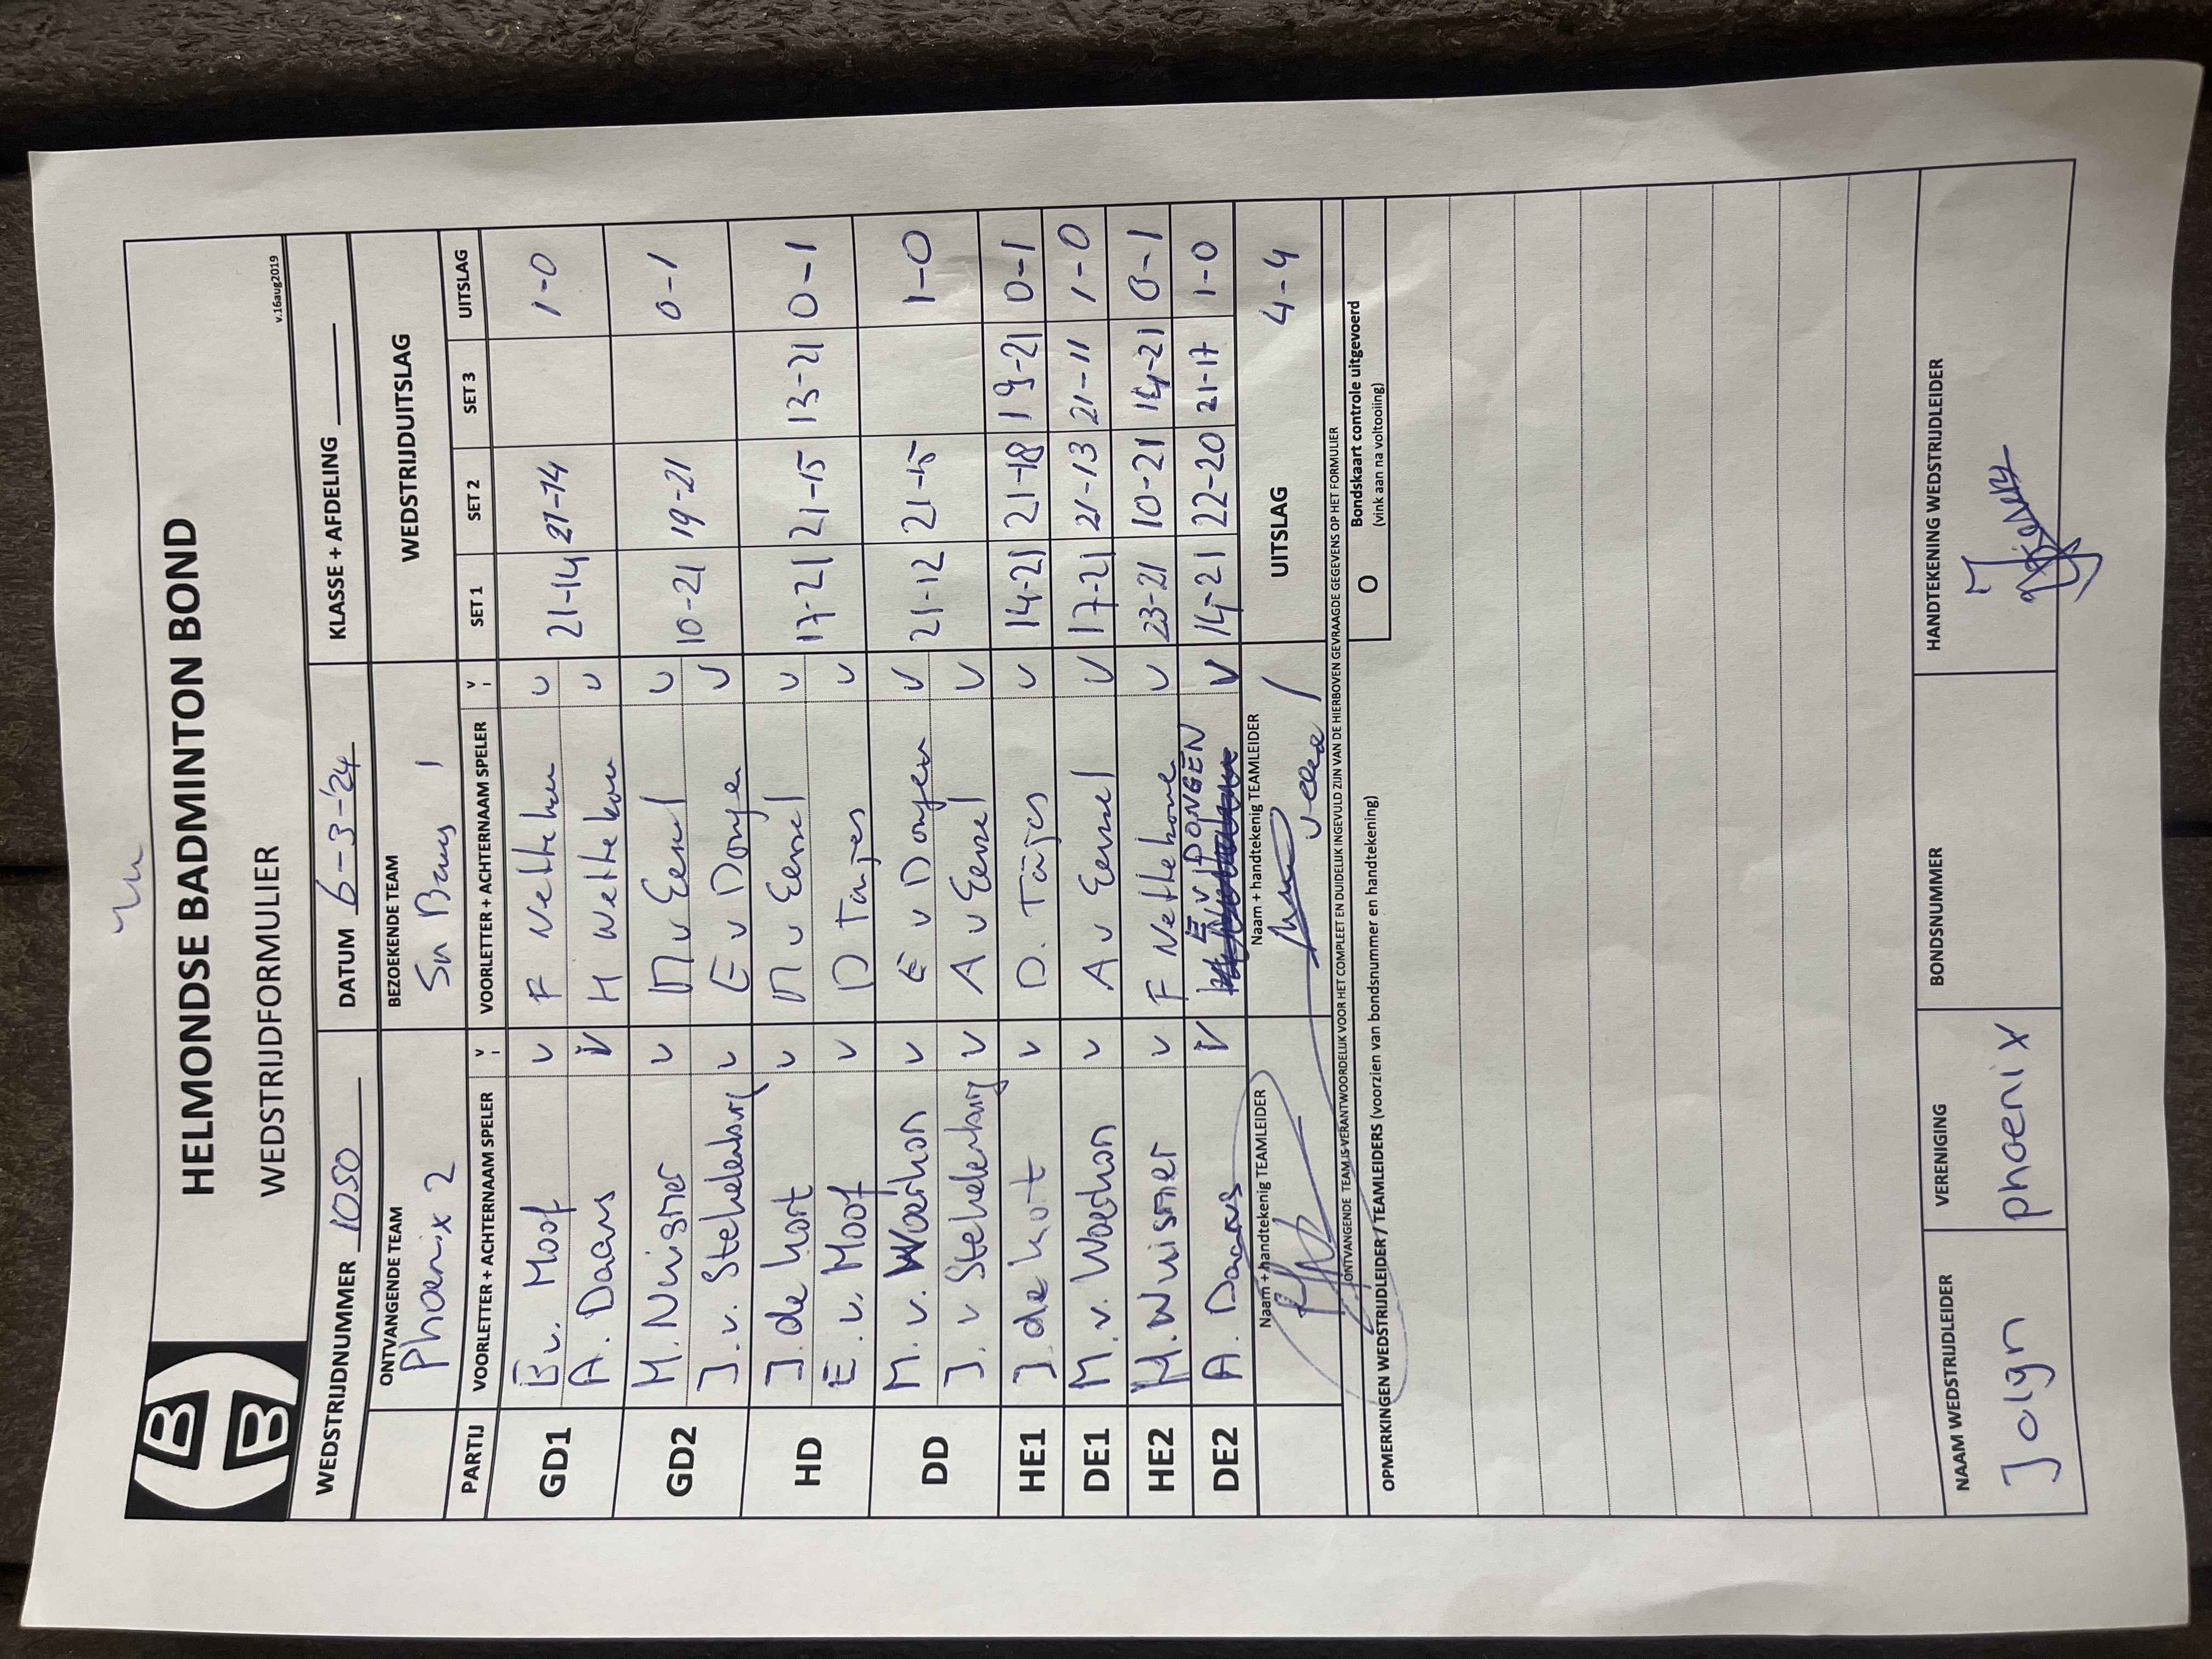 HELMONDSE BADMINTON BOND
WEDSTRIJDFORMULIER
v.16aug2019
WEDSTRIJDNUMMER 1050 DATUM 6-3-'24 KLASSE + AFDELING
ONTVANGENDE TEAM BEZOEKENDE TEAM WEDSTRIJDUITSLAG
Phoenix 2 1
PARTIJ VOORLETTER + ACHTERNAAM SPELER V VOORLETTER + ACHTERNAAM SPELER V SET 1 SET 2 SET 3 UITSLAG
GD1 B v. Moof v F v 21-14 21-14 1-0
A. Daans v H v
GD2 M. v M v Eerсel v 10-21 19-21 0-1
J. v. Stekelenburg v E v Donge v
HD J. de kort v M v Eersel v 17-21 21-15 13-21 0-1
E. v. Moof v D v
DD M. v. Woerkon v E v Dongen v 21-12 21-15 1-0
J. v Stekelenburg v A v Eersel v
HE1 J. de kort v D. v 14-21 21-18 19-21 0-1
DE1 M. v. Woerkon v A v Eersel v 17-21 21-13 21-11 1-0
HE2 M. v F Nettekove v 23-21 10-21 14-21 0-1
DE2 A. Daans v E v DONGEN v 14-21 22-20 21-17 1-0
Naam + handtekenig TEAMLEIDER Naam + handtekenig TEAMLEIDER UITSLAG 4-4
ONTVANGENDE TEAM IS VERANTWOORDELIJK VOOR HET COMPLEET EN DUIDELIJK INGEVULD ZIJN VAN DE HIERBOVEN GEVRAAGDE GEGEVENS OP HET FORMULIER
OPMERKINGEN WEDSTRIJDLEIDER / TEAMLEIDERS (voorzien van bondsnummer en handtekening) O Bondskaart controle uitgevoerd
(vink aan na voltooiing)
NAAM WEDSTRIJDLEIDER VERENIGING BONDSNUMMER HANDTEKENING WEDSTRIJDLEIDER
Jolyn phoenix